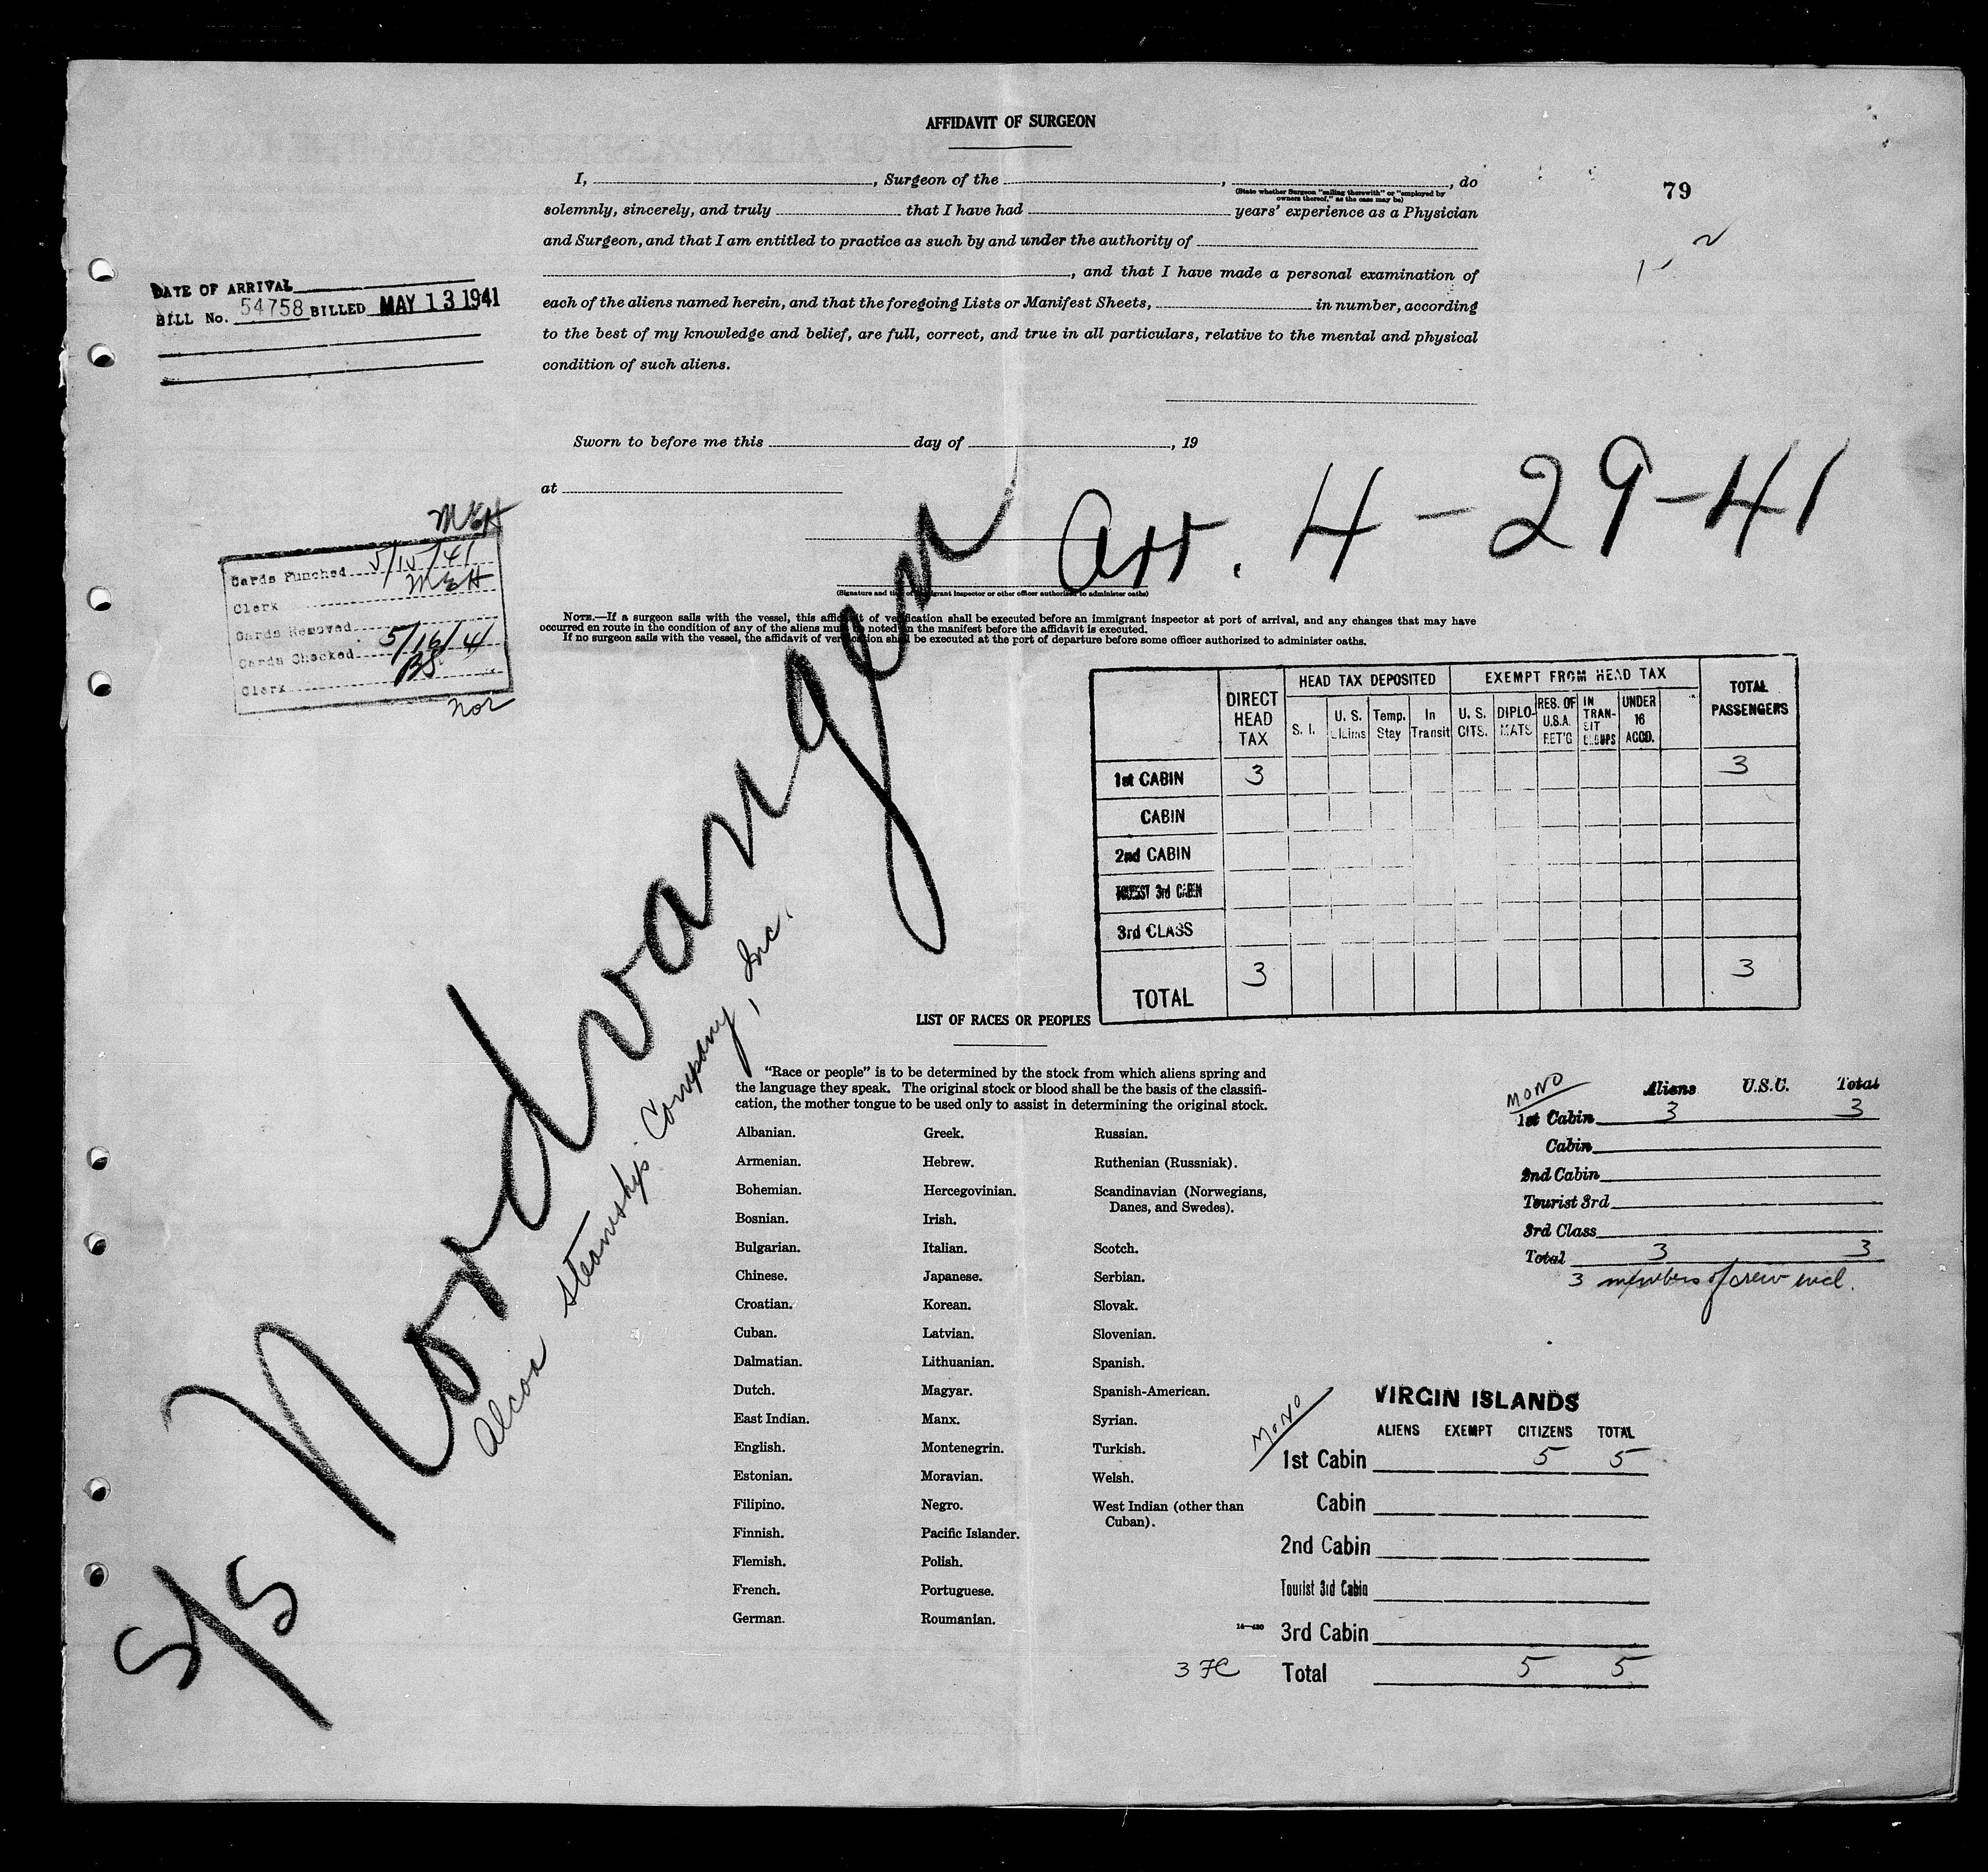 AFFIDAVIT OF SURGEON
I, , Surgeon of the , , do
(State whether Surgeon "sailing therewith" or "employed by
owners thereof," as the case may be)
79
solemnly, sincerely, and truly that I have had years' experience as a Physician
and Surgeon, and that I am entitled to practice as such by and under the authority of
, and that I have made a personal examination of
each of the aliens named herein, and that the foregoing Lists or Manifest Sheets, in number, according
to the best of my knowledge and belief, are full, correct, and true in all particulars, relative to the mental and physical
condition of such aliens.
DATE OF ARRIVAL
BILL No. 54758 BILLED MAY 13 1941
Sworn to before me this day of , 19
at
Arr. 4-29-41
(Signature and title of immigrant inspector or other officer authorized to administer oaths)
MEH
Cards Punched 5/15/41
Clerk MEH
Cards Removed
Cards Checked 5/16/41
Clerk BS
Nor
NOTE.—If a surgeon sails with the vessel, this affidavit of verification shall be executed before an immigrant inspector at port of arrival, and any changes that may have
occurred en route in the condition of any of the aliens must be noted on the manifest before the affidavit is executed.
If no surgeon sails with the vessel, the affidavit of verification shall be executed at the port of departure before some officer authorized to administer oaths.
S/S Nordvangen
Alcoa Steamship Company, Inc.
DIRECT HEAD TAX
HEAD TAX DEPOSITED
EXEMPT FROM HEAD TAX
TOTAL PASSENGERS
S. I. U. S. Temp. Stay In Transit U. S. CITS. DIPLOMATS RES. OF U.S.A. RET'G IN TRANSIT GROUPS UNDER 16 ACCD.
1st CABIN 3 3
CABIN
2nd CABIN
TOURIST 3rd CABIN
3rd CLASS
TOTAL 3 3
LIST OF RACES OR PEOPLES
"Race or people" is to be determined by the stock from which aliens spring and
the language they speak. The original stock or blood shall be the basis of the classifi-
cation, the mother tongue to be used only to assist in determining the original stock.
Albanian.
Armenian.
Bohemian.
Bosnian.
Bulgarian.
Chinese.
Croatian.
Cuban.
Dalmatian.
Dutch.
East Indian.
English.
Estonian.
Filipino.
Finnish.
Flemish.
French.
German.
Greek.
Hebrew.
Hercegovinian.
Irish.
Italian.
Japanese.
Korean.
Latvian.
Lithuanian.
Magyar.
Manx.
Montenegrin.
Moravian.
Negro.
Pacific Islander.
Polish.
Portuguese.
Roumanian.
Russian.
Ruthenian (Russniak).
Scandinavian (Norwegians,
Danes, and Swedes).
Scotch.
Serbian.
Slovak.
Slovenian.
Spanish.
Spanish-American.
Syrian.
Turkish.
Welsh.
West Indian (other than
Cuban).
14—430
MONO
Aliens U.S.C. Total
1st Cabin 3 3
Cabin
2nd Cabin
Tourist 3rd
3rd Class
Total 3 3
3 members of crew incl.
MONO
VIRGIN ISLANDS
ALIENS EXEMPT CITIZENS TOTAL
1st Cabin 5 5
Cabin
2nd Cabin
Tourist 3rd Cabin
3rd Cabin
Total 5 5
3 FC